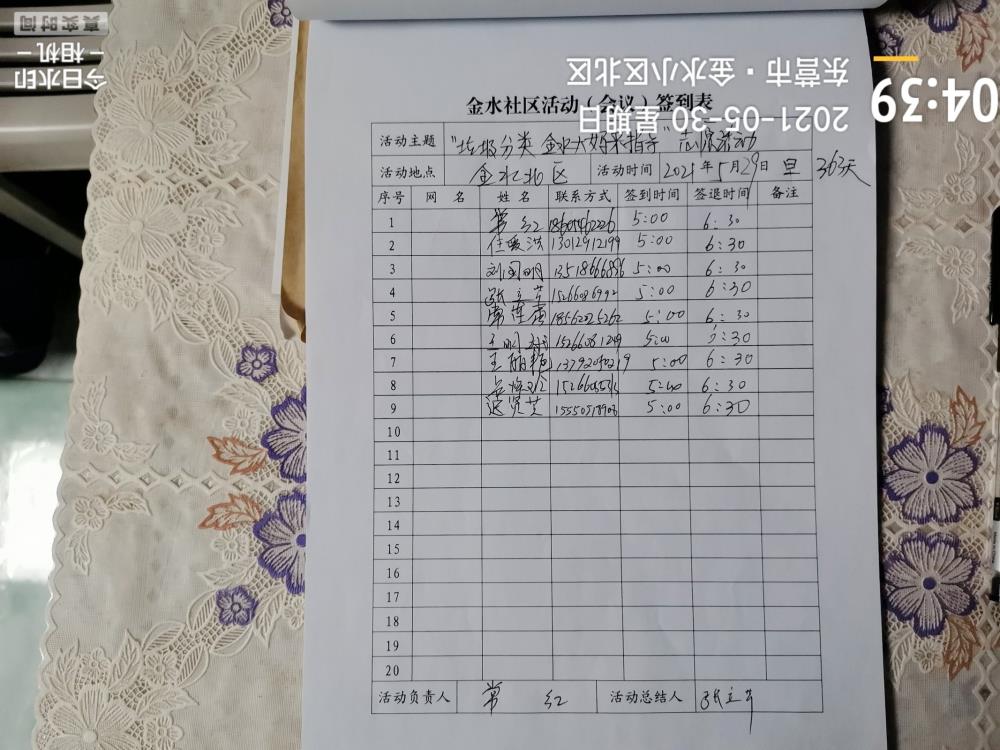 04:39
2021-05-30 星期日
东营市·金水小区北区
今日水印
-相机-
真实时间
金水社区活动(会议)签到表
活动主题 "垃圾分类 金水大妈来指导"志愿活动
活动地点 金水北区 活动时间 2021年5月29日 早 363天
序号 网名 姓名 联系方式 签到时间 签退时间 备注
1 常红 5:00 6:30
2 13012912199 5:00 6:30
3 刘国明 13518666896 5:00 6:30
4 张立芹 1526686992 5:00 6:30
5 18562025262 5:00 6:30
6 15266081249 5:00 6:30
7 王丽艳 5:00 6:30
8 5:00 6:30
9 15550518903 5:00 6:30
10
11
12
13
14
15
16
17
18
19
20
活动负责人 常红 活动总结人 张立芹